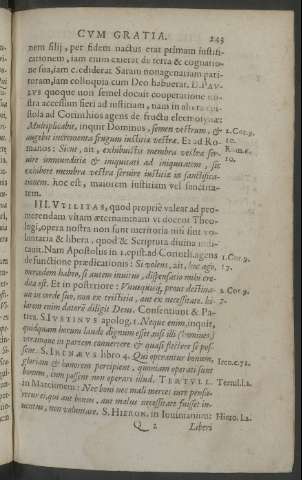 CVM GRATIA. 243
nem filij, per fidem nactus erat primam iustifi-
cationem, iam enim exierat de terra & cognatio-
ne sua, iam crediderat. Saram nonagenariam pari-
turam, iam colloquia cum Deo habuerat. D. PAV-
LVS quoque non semel docuit cooperatione no-
stra accessum fieri ad iustitiam, nam in altera epi-
stola ad Corinthios agens de fructu eleemosynæ:
Multiplicabit, inquit Dominus, semen vestrum, & 2. Cor. 9.
augebit incrementa frugum iustitiæ vestræ. Et ad Ro- 10.
manos: Sicut, ait, exhibuistis membra vestra ser- Rom. 6.
uire immunditiæ & iniquitati ad iniquitatem, sic 19.
exhibete membra vestra seruire iustitiæ in sanctifica-
tionem. hoc est, maiorem iustitiam vel sanctita-
tem.
III. VTILITAS, quod propriè valeat ad pro-
merendam vitam æternam nam vt docent Theo-
logi, opera nostra non sunt meritoria nisi sint vo-
luntaria & libera, quod & Scriptura diuina
Nam Apostolus in 1. epist. ad Corinth. agens 1. Cor. 9.
de functione prædicationis: Si volens, ait, hoc ago, 17.
mercedem habeo, si autem inuitus, dispensatio mihi cre-
dita est. Et in posteriore: Vnusquisq, prout destina- 2. Cor. 9.
uit in corde suo, non ex tristitia, aut ex necessitate. hi- 7.
larem enim datorē diligit Deus. Consentiunt & Pa-
tres. S. IVSTINVS apolog. 1. Neque enim, inquit,
quidquam horum laude dignum esset, nisi illi (homines)
vtramque in partem conuertere & quasi flectere se pos-
sent. S. IRENÆVS libro 4. Qui operantur bonum, Iren. c. 72.
gloriam & honorem percipient, quoniam operati sunt
bonum, cum possent non operari illud. TERTVLL. Tertul. l. 2.
in Marcionem: Nec boni nec mali merces iure pensa-
retur ei, qui aut bonus, aut malus necessitate fuisset in-
uentus, non voluntate. S. HIERON. in Iouinianum: Hiero. l. 2.
Q 2 Liberi